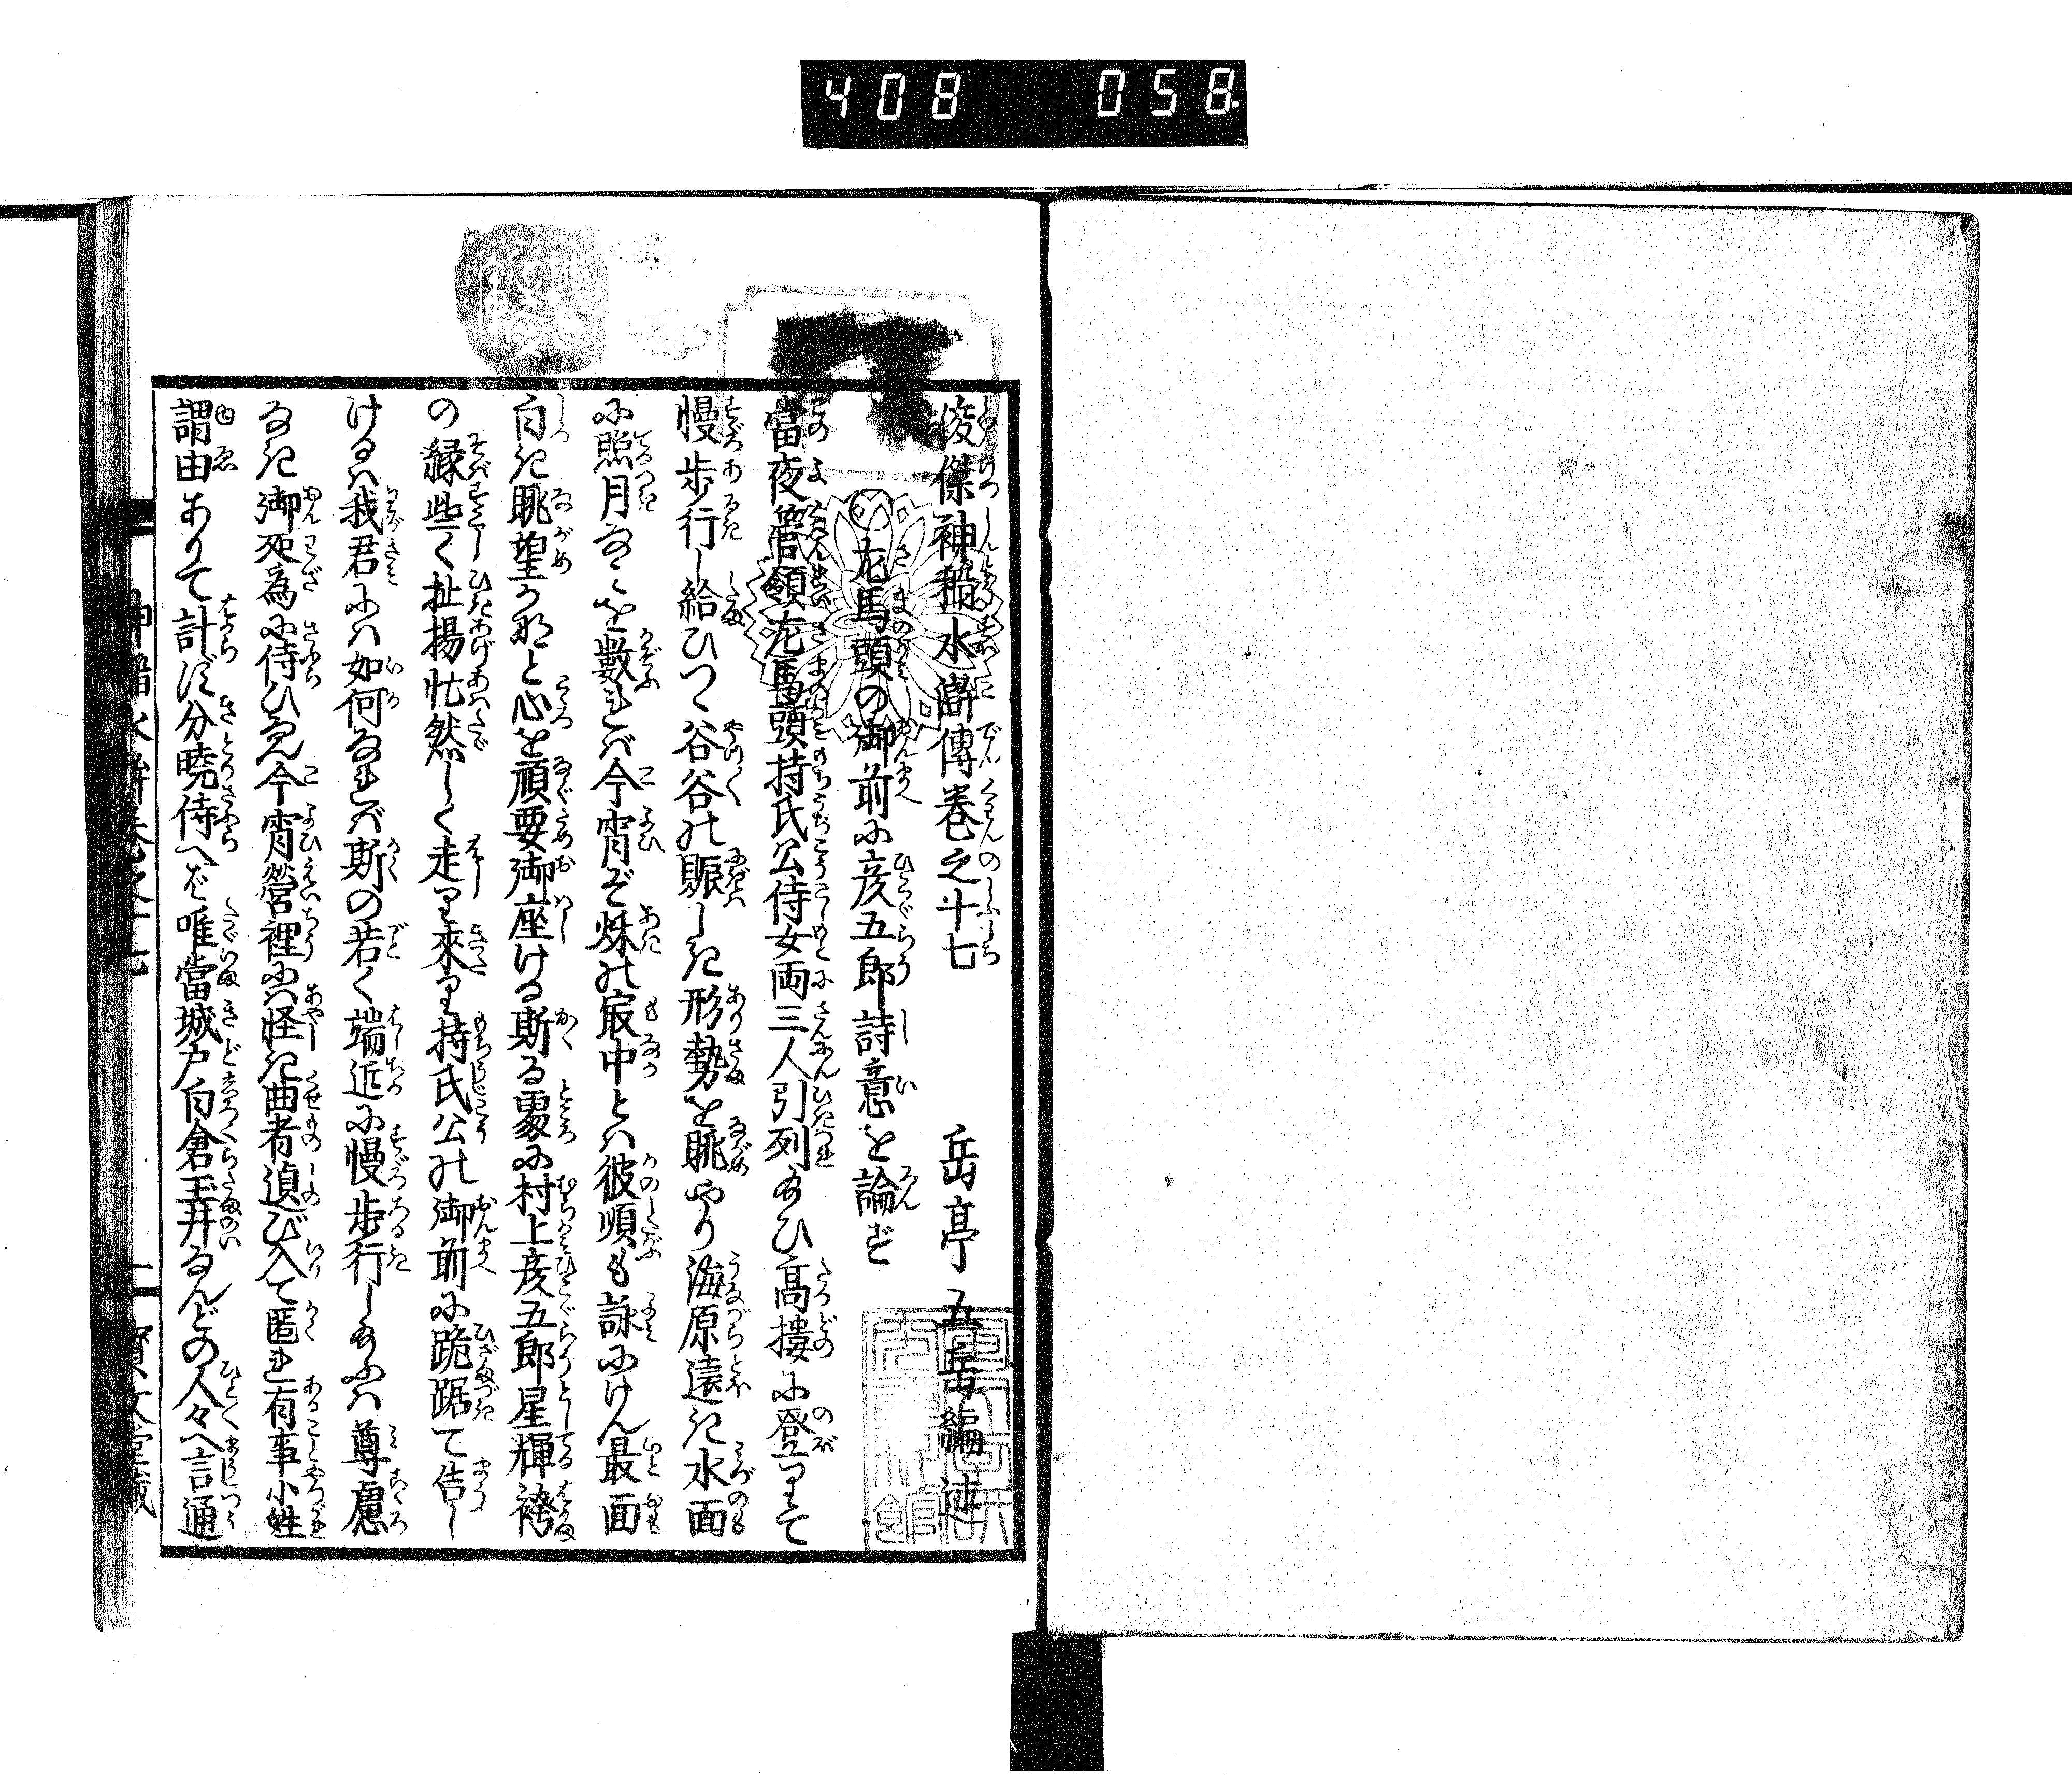 408 058
俊傑神稲水滸傳巻之十七 岳亭五岳編述
○左馬頭の御前に彦五郎詩意を論ず
當夜管領左馬頭持氏公侍女両三人引列給ひ髙楼に登りて
慢歩行し給ひつゝ谷谷の賑しき形勢を眺やり海原遠き水面
に照月なみを數れば今宵ぞ秌の冣中とハ彼順も詠にけん最面
白き眺望かなと心を頑要御座ける斯る処に村上彦五郎星輝袴
の縁些く扯揚忙然しく走り來り持氏公の御前に跪踞て告し
けるハ我君にハ如何なれバ斯の若く端近に慢歩行し給ふハ尊慮
なき御所為に侍ひぬ今宵營裡にハ怪き曲者遉び入て匿れ有事小姓
謂由ありて計ず分曉侍へど唯當城戸白倉玉井なんどの人々へ言通